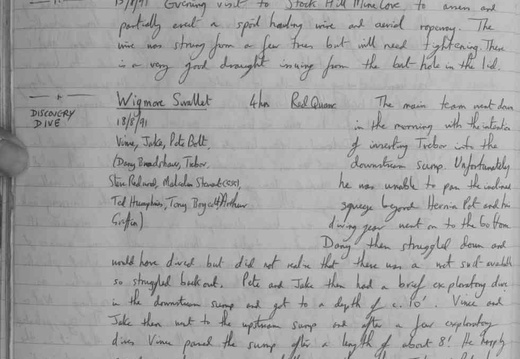 13/8/91 Evening visit to Stock Hill Mine Cave to assess and
partially erect a spoil hauling wire and aerial ropeway. The
wire was strung from a few trees but will need tightening. There
is a very good draught issuing from the bat hole in the lid.
Wigmore Swallet 4hrs Red Quarr The main team went down
DISCOVERY
DIVE
18/8/91 in the morning with the intention
Vince, Jake, Pete Bolt, of inserting Trebor into the
(Dany Bradshaw, Trebor, downstream sump. Unfortunately
Stan Redwood, Malcolm Stewart he was unable to pass the inclined
Ted Humphries, Tony Boycott, Arthur squeeze beyond Hernia Pot and his
Griffin) diving gear went on to the bottom.
Dany then struggled down and
would have dived but did not realise that there was a wet suit available
so struggled back out. Pete and Jake then had a brief exploratory dive
in the downstream sump and got to a depth of c. 10'. Vince and
Jake then went to the upstream sump and after a few exploratory
dives Vince passed the sump after a length of about 8'! He